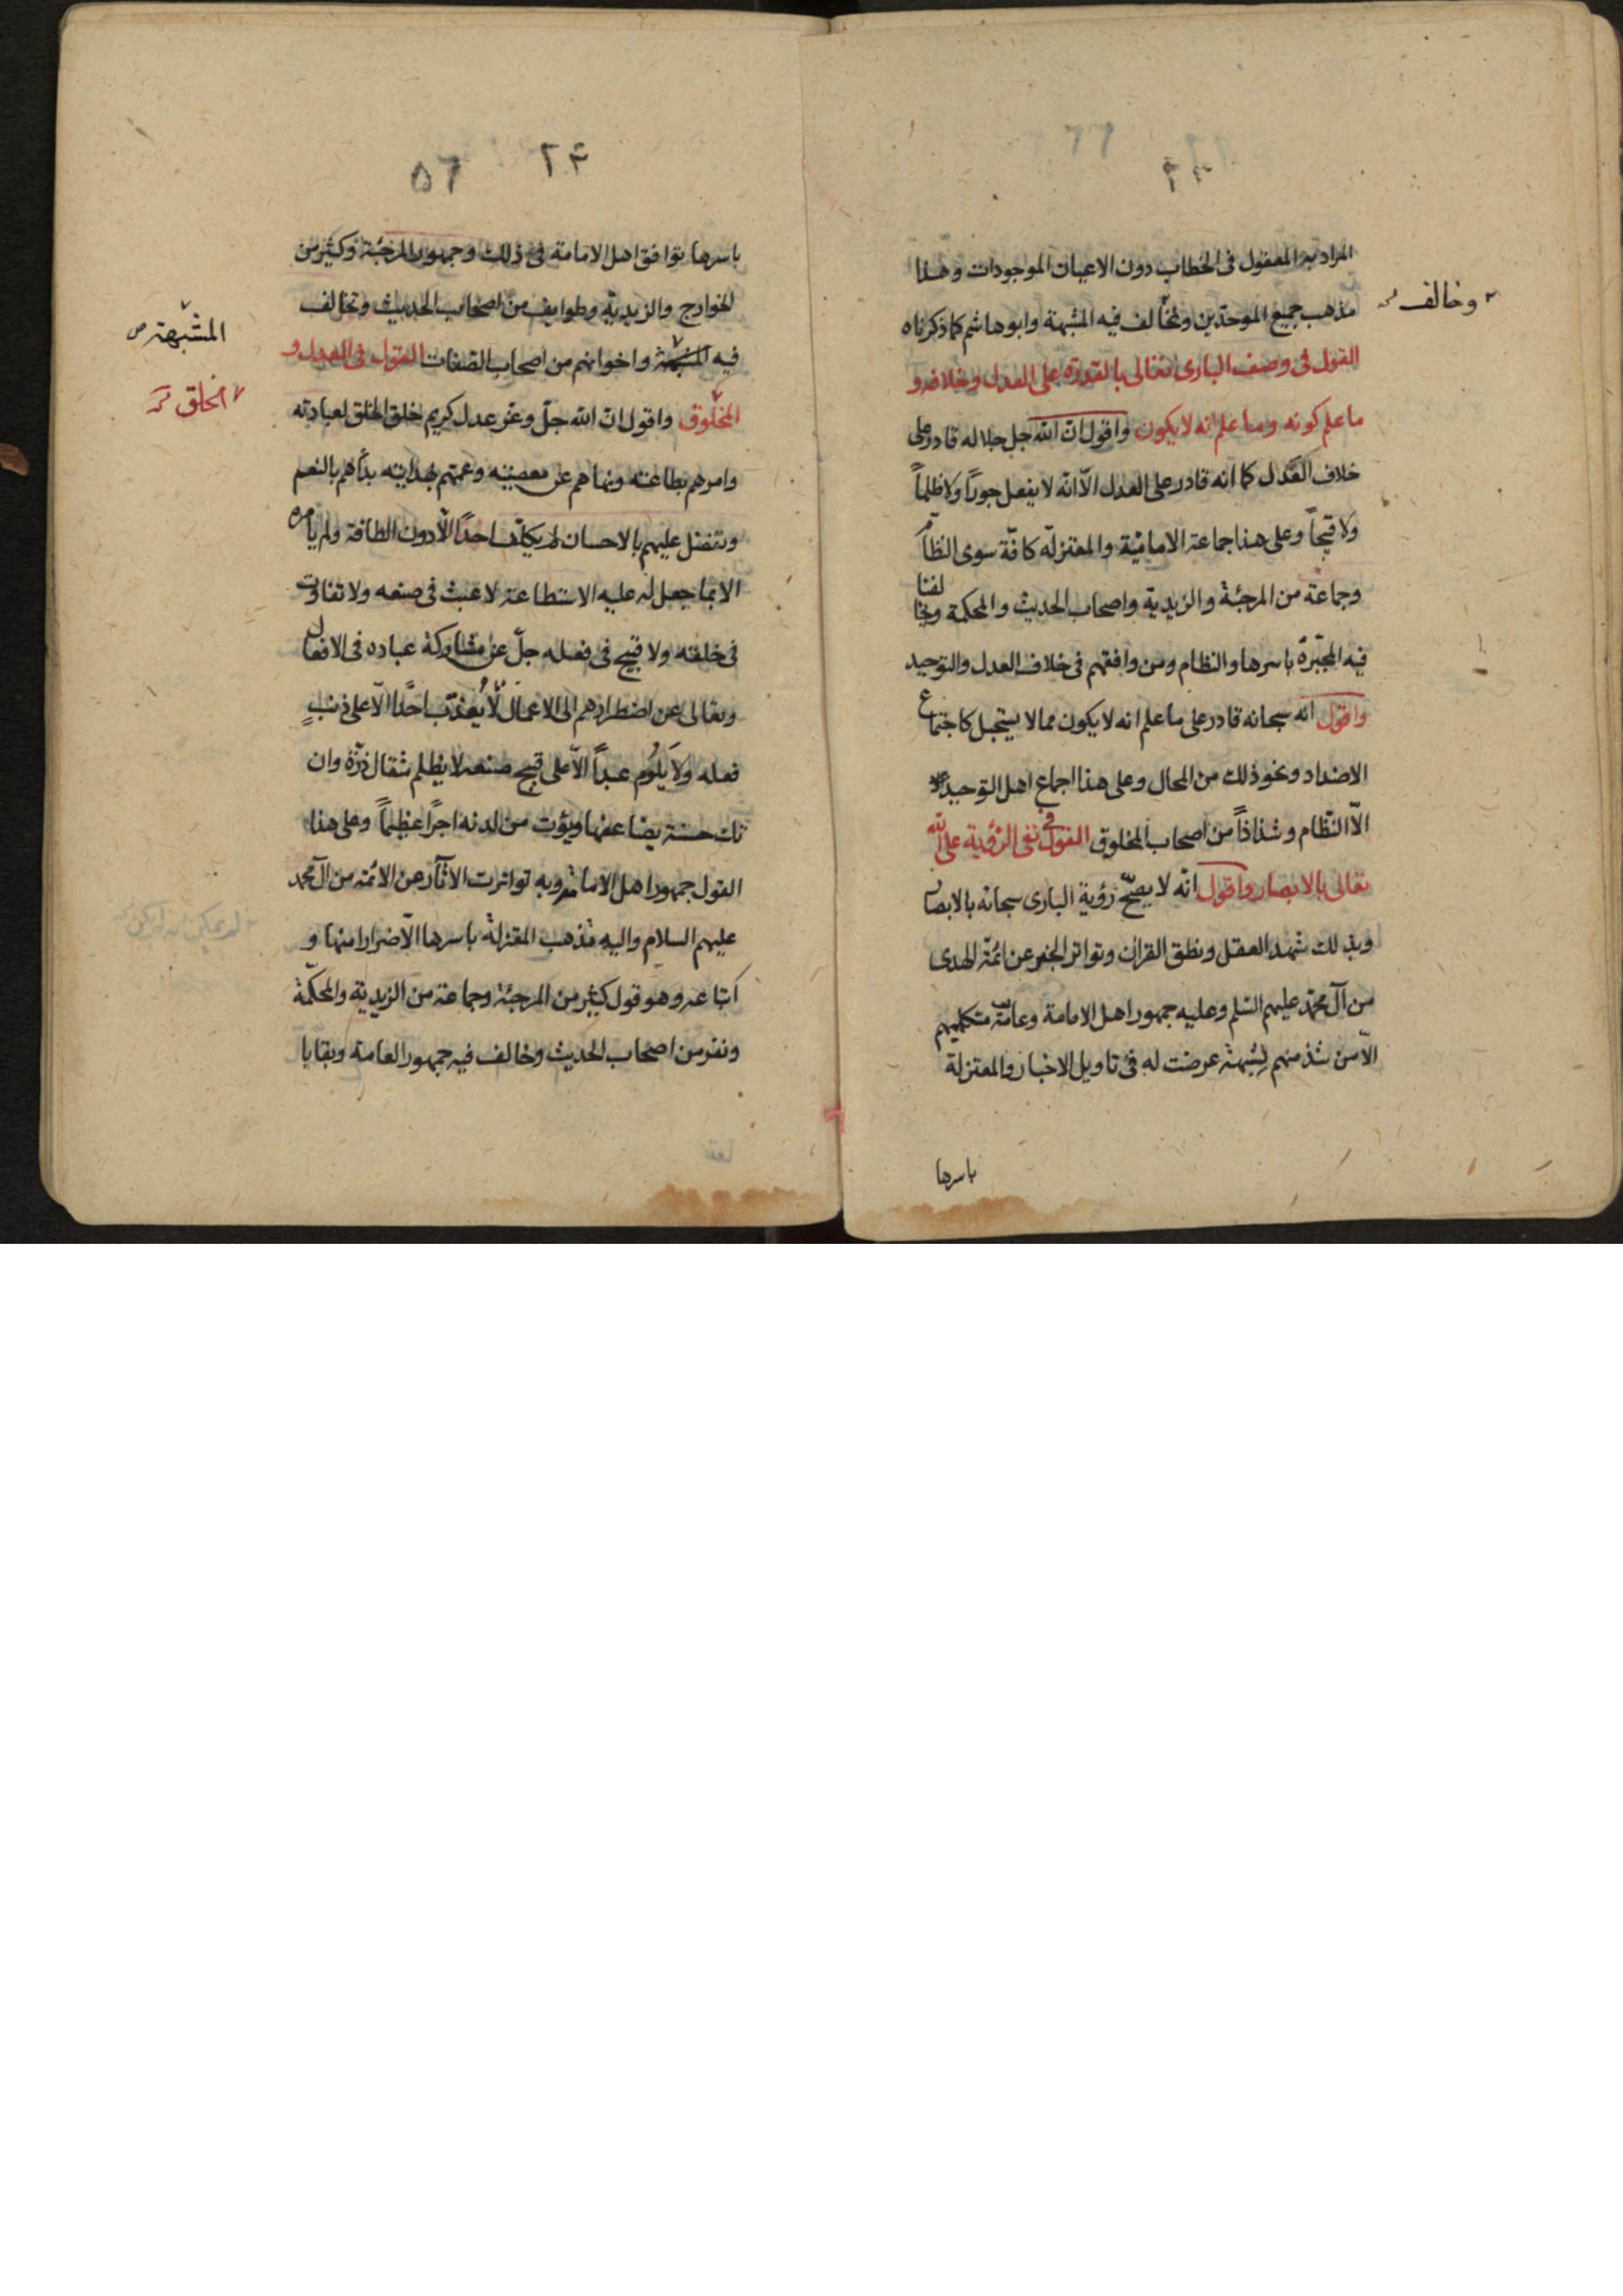 المراد به المعقول فى الخطاب دون الاعيان الموجودات وهذا
مذهب جميع الموحدين ويخالف فيه المشبهة وابو هاشم كما ذكرناه
وخالف
القول فى وصف البارى تعالى بالقدرة على العدل وخلافه و
ما علم كونه وما علم انه لا يكون واقول انّ الله جل جلاله قادر على
خلاف العدل كما انه قادر على العدل الّا انّه لا يفعل جوراً ولا ظلماً
ولا قبيحاً وعلى هذا جماعة الامامية والمعتزلة كافّة سوى النظّام
وجماعة من المرجئة والزيدية واصحاب الحديث والمحكمة ويخالفنا
فيه المجبّرة باسرها والنظام ومن وافقهم فى خلاف العدل والتوحيد
واقول انه سبحانه قادر على ما علم انه لا يكون مما لا يستحيل كاجتماع
الاضداد ونحو ذلك من المحال وعلى هذا اجماع اهل التوحيد
الّا النظّام وشذاذاً من اصحاب المخلوق القول فى نفى الرؤية على الله
تعالى بالابصار واقول انّه لا يصحّ رؤية البارى سبحانه بالابصار
وبذلك شهد العقل ونطق القران وتواتر الخبر عن ائمّة الهدى
من آل محمّد عليهم السّلم وعليه جمهور اهل الامامة وعامّة متكلميهم
الّا من شذ منهم لِشبهة عرضت له فى تاويل الاخبار والمعتزلة
باسرها
٢۴ ٥٦
باسرها توافق اهل الامامة فى ذلك وجمهور المرجئة وكثير من
الخوارج والزيدية وطوايف من اصحاب الحديث وتخالف
فيه المشبهة واخوانهم من اصحاب الصفات القول فى العدل و
المشبّهة
المخلوق واقول انّ الله جلّ وعزّ عدل كريم خلق الخلق لعبادته
الخلق
وامرهم بطاعته ونهاهم عن معصيته وعمّهم بهدايته بدأهم بالنعم
وتفضل عليهم بالاحسان لم يكلّف احداً الّا دون الطاقة ولم يأمره
الا بما جعل له عليه الاستطاعة لا عبث فى صنعه ولا تفاوت
فى خلقه ولا قبيح فى فعله جلّ عن مشاركة عباده فى الافعال
وتعالى عن اضطرارهم الى الاعمال لا يُعذّب احداً الّا على ذنبٍ
فعله ولا يَلُوم عبداً الّا على قبيح صنعه لا يظلم مثقال ذرّة وان
تك حسنة يضاعفها ويؤت من لدنه اجراً عظيماً وعلى هذا
القول جمهور اهل الامامة وبه تواترت الآثار عن الائمّة من آل محمد
عليهم السلام واليه مذهب المعتزلة باسرها الّا ضرارا منها و
اتباعه وهو قول كثير من المرجئة وجماعة من الزيدية والمحكّمة
ونفر من اصحاب الحديث وخالف فيه جمهور العامة وبقايا